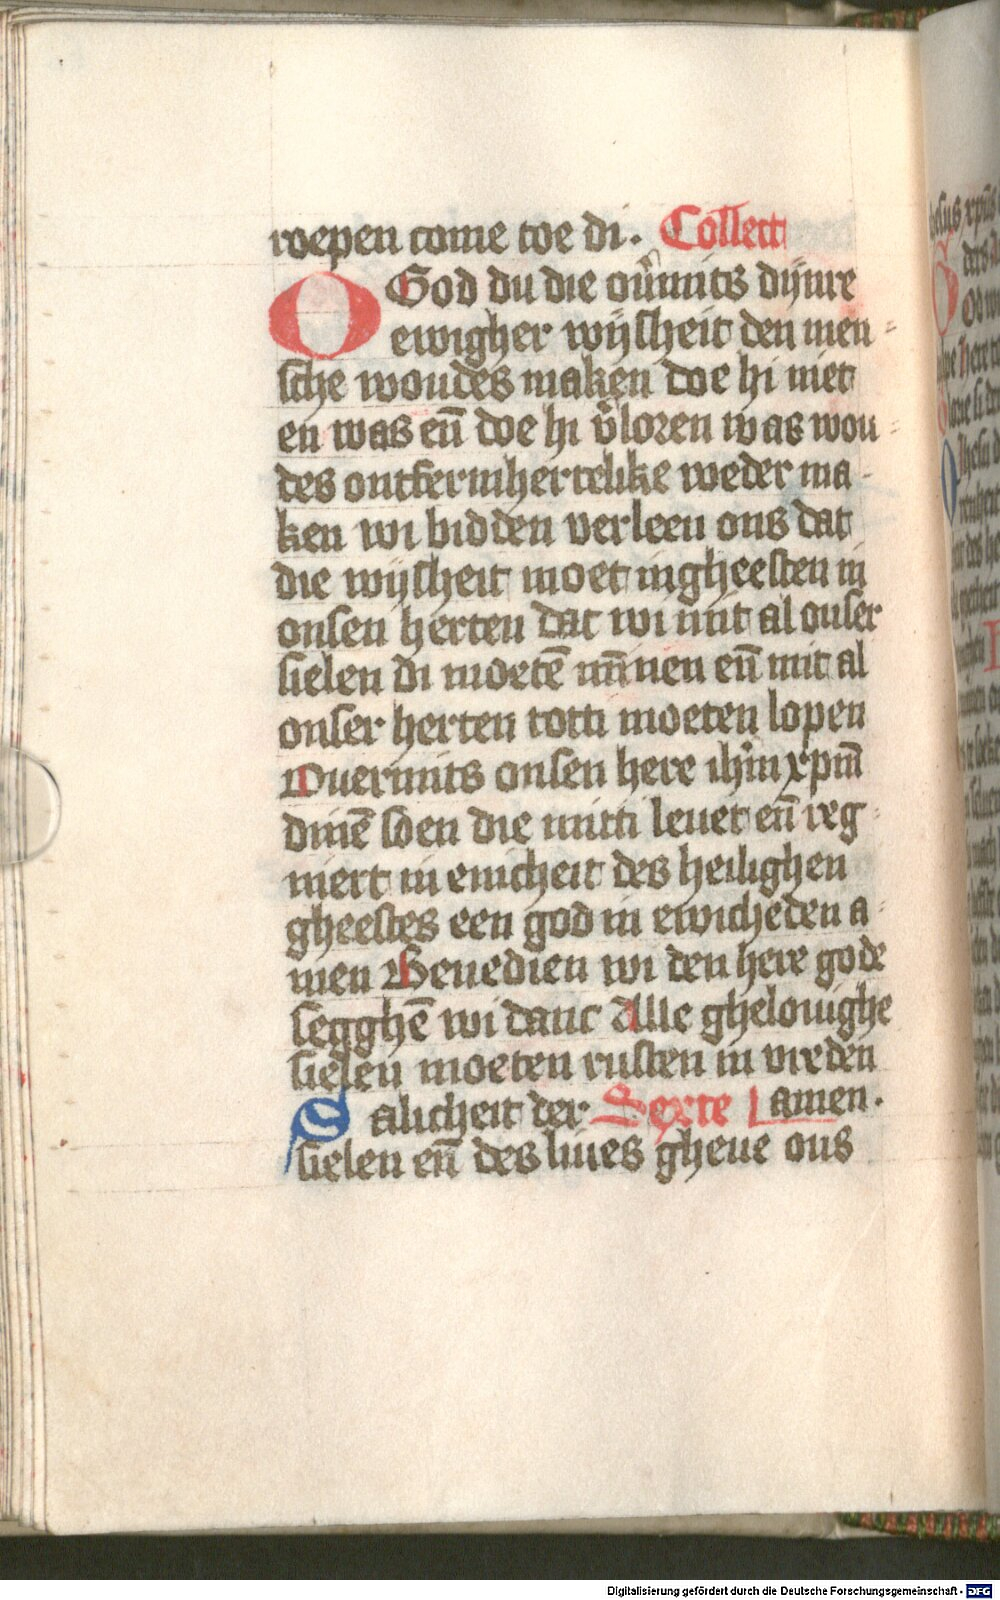 roepen come toe di. Collect
O God du die ou̅mits dijnre
ewigher wijsheit den men
sche woudes maken doe hi niet
en was en̅ doe hi v̅loren was wou
des ontfermhertelike weder ma
ken wi bidden verleen ons dat
die wijsheit moet ingheesten in
onsen herten dat wi mit al onser
sielen di moete̅ mi̅nen en̅ mit al
onser herten totti moeten lopen
Ouermits onsen here ih̅m xp̅m
dine̅ soen die mitti leuet en̅ reg
niert in enicheit des heilighen
gheestes een god in ewicheden a
men Benedien wi den here gode
segghe̅ wi danc Alle ghelouighe
sielen moeten rusten in vreden
Salicheit der Sexte amen.
sielen en̅ des liues gheue ons
Digitalisierung gefördert durch die Deutsche Forschungsgemeinschaft - DFG